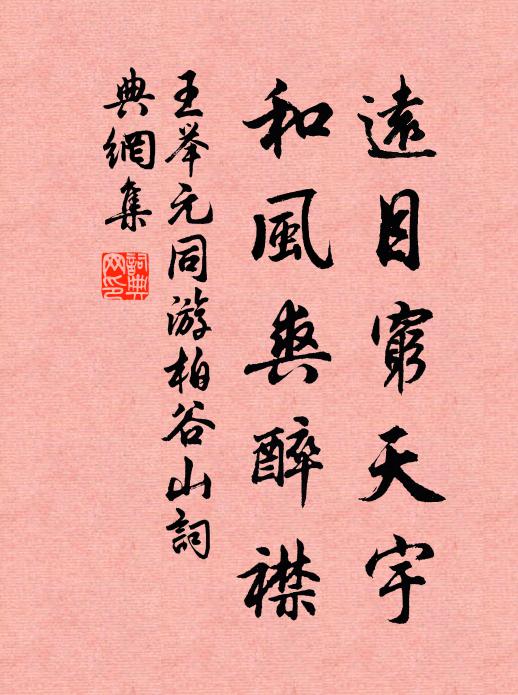 遠目窮天宇
和風爽醉襟
王举元同游柏谷山詞
典網集
詞典网印